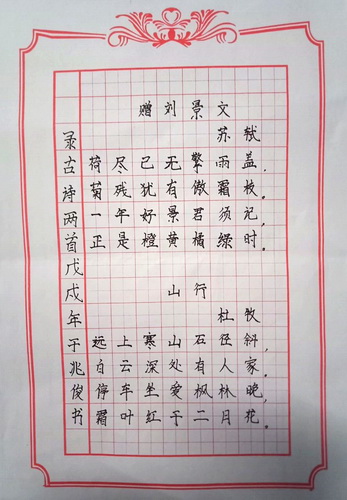 赠刘景文
苏轼
荷尽已无擎雨盖，
菊残犹有傲霜枝。
一年好景君须记，
正是橙黄橘绿时。
山行
杜牧
远上寒山石径斜，
白云深处有人家。
停车坐爱枫林晚，
霜叶红于二月花。
录古诗两首戊戌年于兆俊书